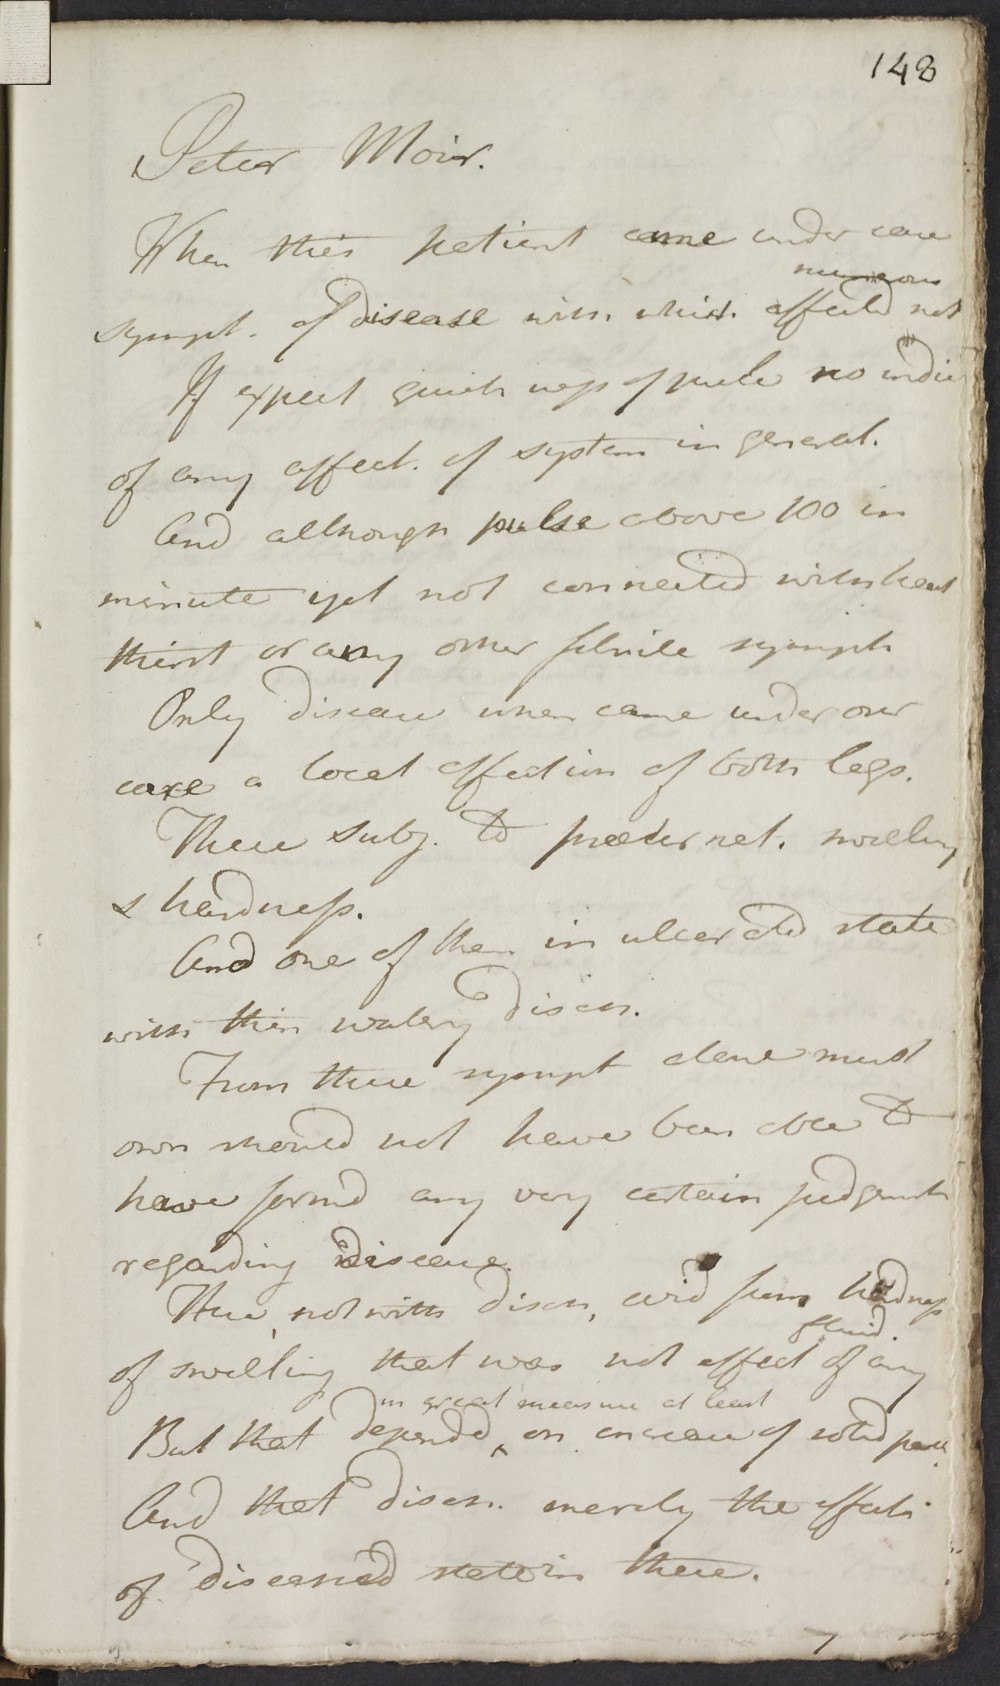 148
Peter Moir.
When this patient came under care
numerous
sympt. of disease with which affected not
If except quickness of pulse no indic
of any affect. of system in general.
And although pulse above 100 in
minute yet not connected with heat
thirst or any other febrile symptn
Only disease when came under our
care a local affection of both legs.
These subj. to præternat. swelling
& hardness.
And one of them in ulcerated state
with thin watery disch.
From these sympt alone must
own should not have been able to
have formd any very certain judgment
regarding disease.
Here, notwith disch, acid from hardness
of swelling that was not effect of any
fluid.
in great measure at least
But that depended ^ on increase of solid parts
And that disch. merely the effects
of diseased state in these.